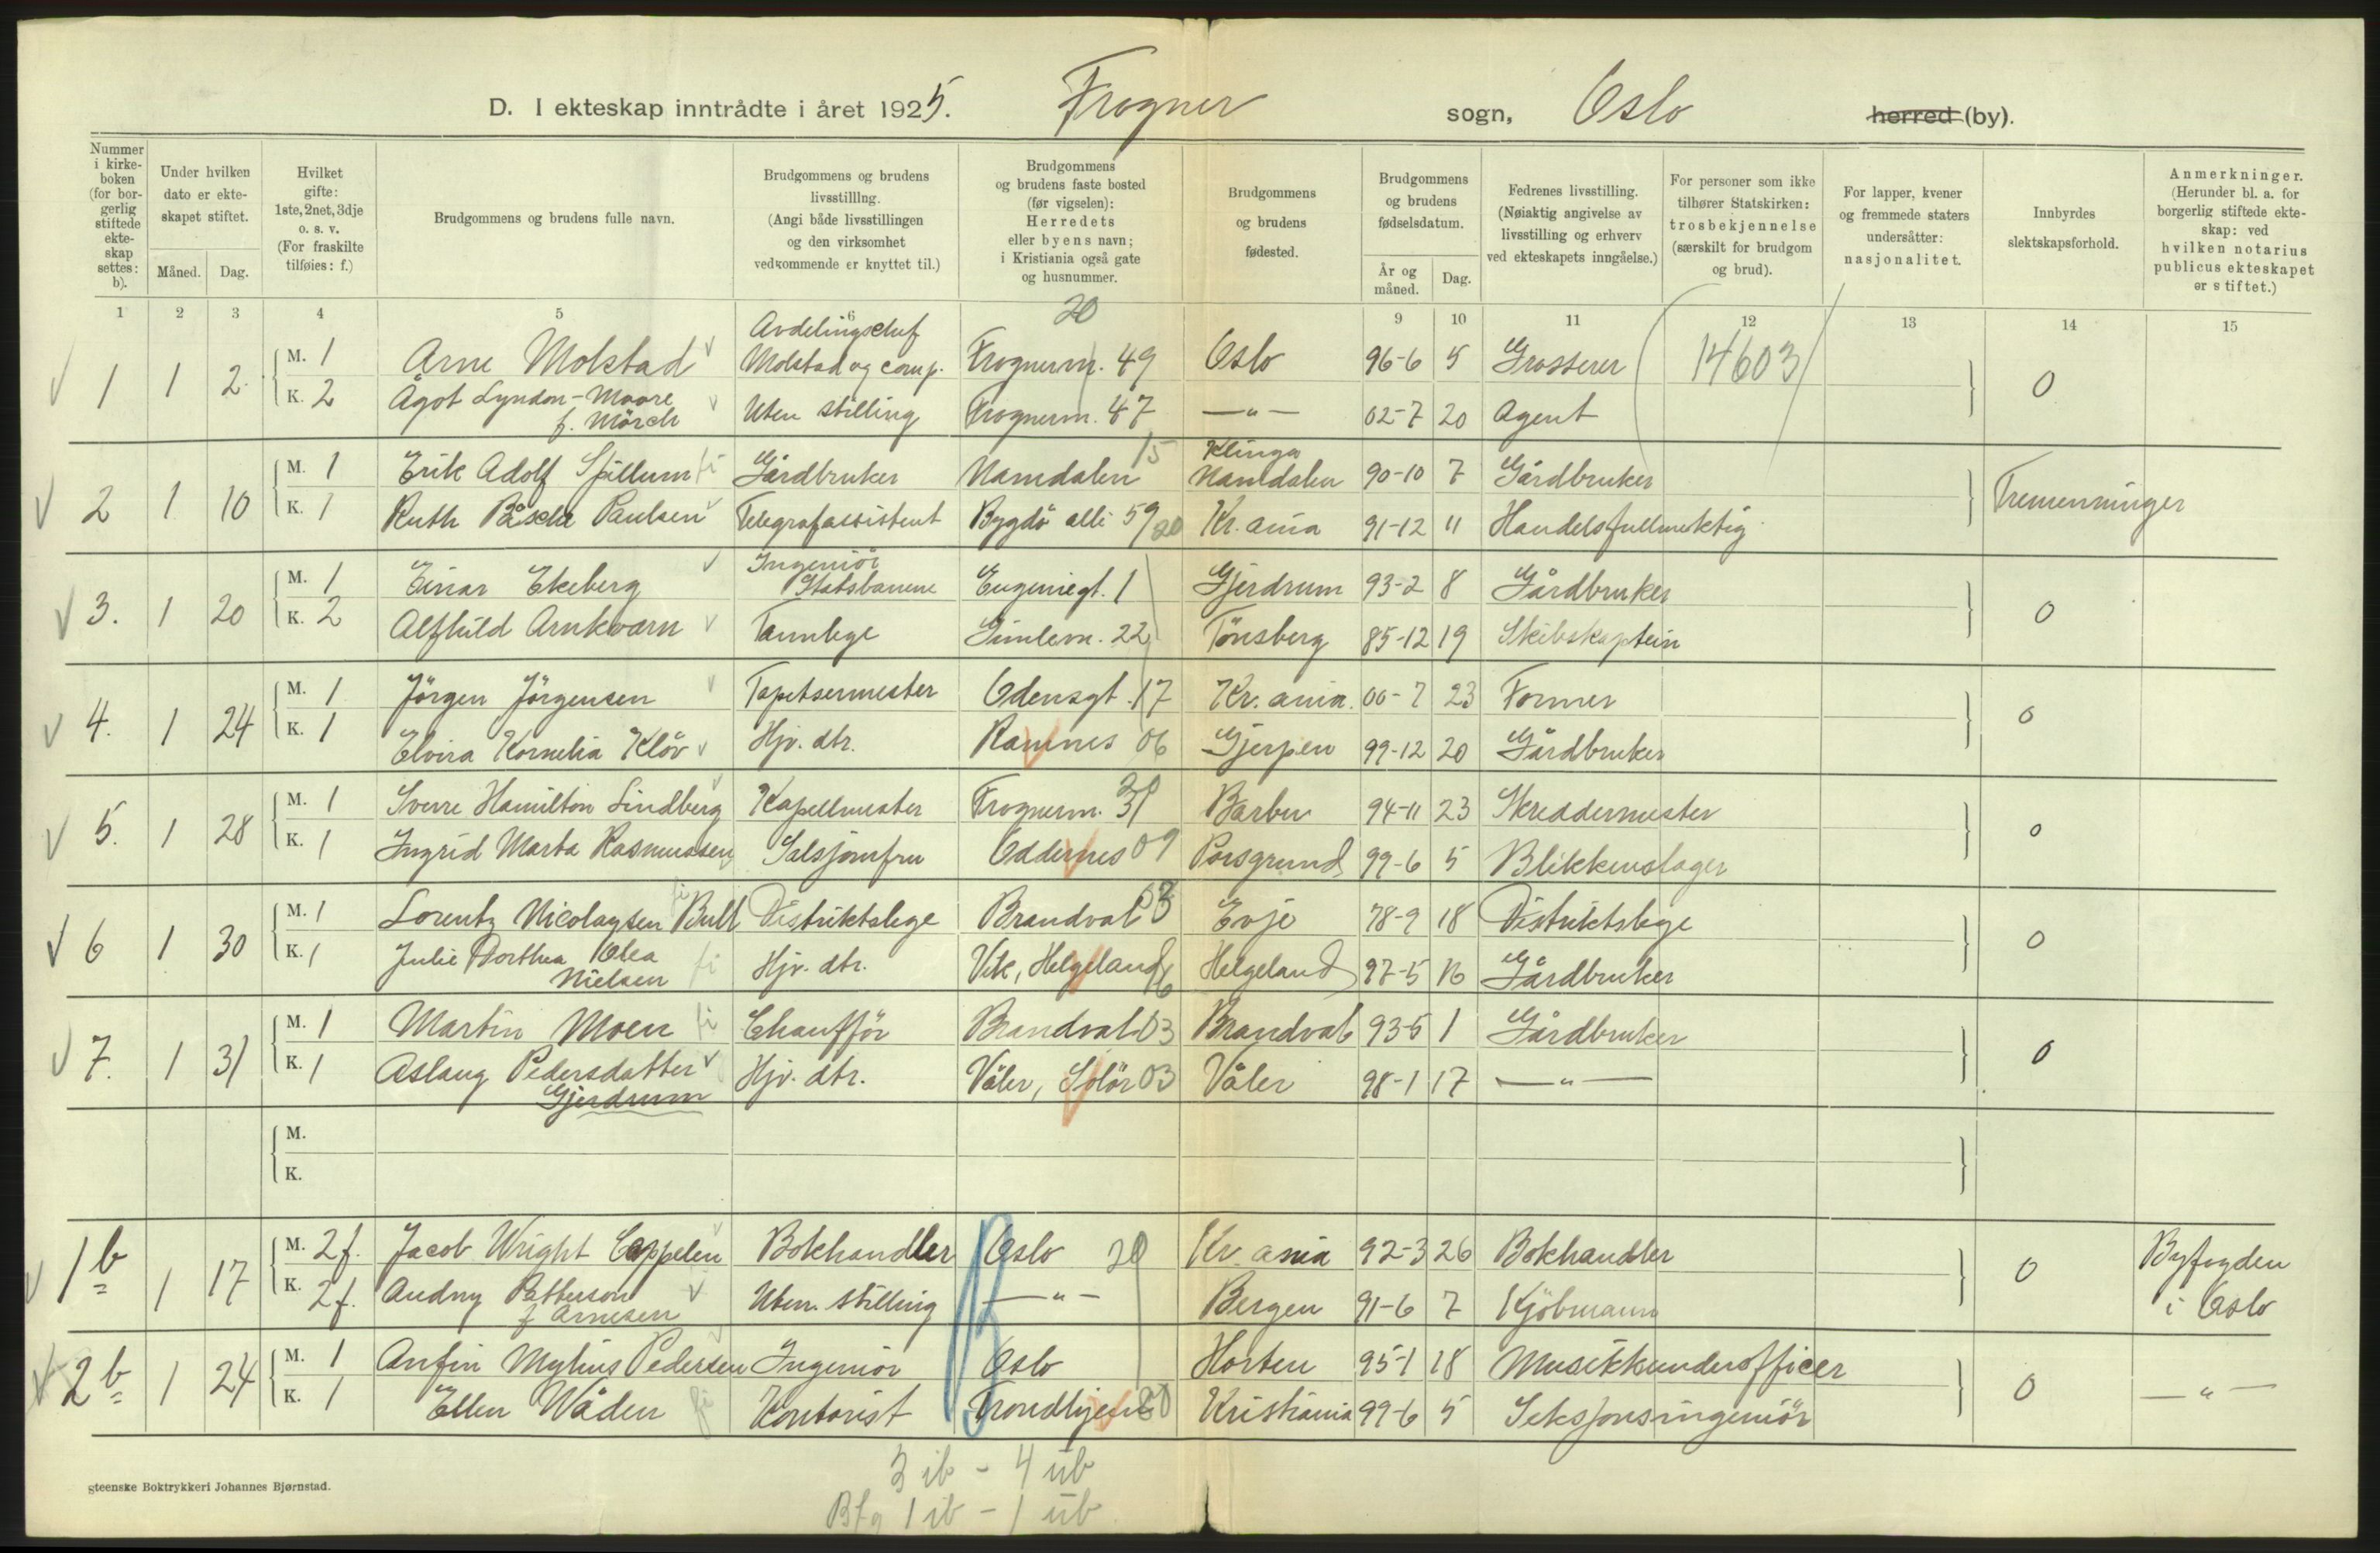 D. I ekteskap inntrådte i året 1925. Frogner sogn, Oslo herred (by).
Nummer i kirke-boken (for bor-gerlig stiftede ekte-skap settes: b).
Under hvilken dato er ekte-skapet stiftet.
Måned. Dag.
Hvilket gifte: 1ste, 2net, 3dje o. s. v. (For fraskilte tilføies: f.)
Brudgommens og brudens fulle navn.
Brudgommens og brudens livsstilllng. (Angi både livsstillingen og den virksomhet vedkommende er knyttet til.)
Brudgommens og brudens faste bosted (før vigselen): Herredets eller byens navn; i Kristiania også gate og husnummer.
Brudgommens og brudens fødested.
Brudgommens og brudens fødselsdatum.
År og måned. Dag.
Fedrenes livsstilling. (Nøiaktig angivelse av livsstilling og erhverv ved ekteskapets inngåelse.)
For personer som ikke tilhører Statskirken: trosbekjennelse (særskilt for brudgom og brud).
For lapper, kvener og fremmede staters undersåtter: nasjonalitet.
Innbyrdes slektskapsforhold.
Anmerkninger. (Herunder bl. a. for borgerlig stiftede ekte-skap: ved hvilken notarius publicus ekteskapet er stiftet.)
1 2 3 4 5 6 9 10 11 12 13 14 15
20
1 1 2 M. 1 Arne Molstad Avdelingschef Molstad og comp. Frognerv. 49 Oslo 96-6 5 Grosserer 14603 0
K. 2 Ågot Lyndon-Moore f. Mörch Uten stilling Frognerv. 47 —"— 02-7 20 Agent
2 1 10 M. 1 Erik Adolf Spillum Gårdbruker Namdalen 15 Klinga Namdalen 90-10 7 Gårdbruker Tremenninger
K. 1 Ruth Påsche Paulsen Telegrafassistent Bygdö alle 59 20 Kr.ania 91-12 11 Handelsfullmektig
3. 1 20 M. 1 Einar Ekeberg Ingeniör Statsbanene Eugeniegt. 1 Gjerdrum 93-2 8 Gårdbruker 0
K. 2 Alfhild Arnkværn Tannlege Gimlevn. 22 Tönsberg 85-12 19 Skibskaptein
4. 1 24 M. 1 Jörgen Jörgensen Tapetsermester Odensgt. 17 Kr.ania. 00-7 23 Former 0
K. 1 Elvira Kornelia Klöv Hjv. dtr. Ramnes 06 Gjerpen 99-12 20 Gårdbruker
5. 1 28 M. 1 Sverre Hamilton Lindberg Kapellmester Frognerv. 31 Barbu 94-11 23 Skreddermester 0
K. 1 Ingrid Marta Rasmussen Salsjomfru Oddernes 09 Porsgrund 99-6 5 Blikkenslager
6 1 30 M. 1 Lorentz Nicolaysen Bull Distriktslege Brandval 03 Evje 78-9 18 Distriktslege 0
K. 1 Julie Dorthea Olea Nielsen Hjv. dtr. Vik, Helgeland 16 Helgeland 97-5 16 Gårdbruker
7. 1 31 M. 1 Martin Moen Chaufför Brandval 03 Brandval 93-5 1 Gårdbruker 0
K. 1 Aslaug Pedersdatter Gjerdrum Hjv. dtr. Våler, Solör 03 Våler 98-1 17 —"—
M.
K.
1b 1 17 M. 2f. Jacob Wright Cappelen Bokhandler Oslo 20 Kr.ania 92-3 26 Bokhandler 0 Byfogden i Oslo
K. 2f. Audny Patterson f Arnesen Uten stilling —"— Bergen 91-6 7 Kjöbmann
2b 1 24 M. 1 Anfin Mylius Pedersen Ingeniör Oslo Horten 95-1 18 Musikkunderofficer 0 —"—
K. 1 Ellen Wåden Kontorist Trondhjem Kristiania 99-6 5 Seksjonsingeniör
3 ib - 4 ub
Bfg 1 ib - 1 ub
gteenske Boktrykkeri Johannes Bjørnstad.